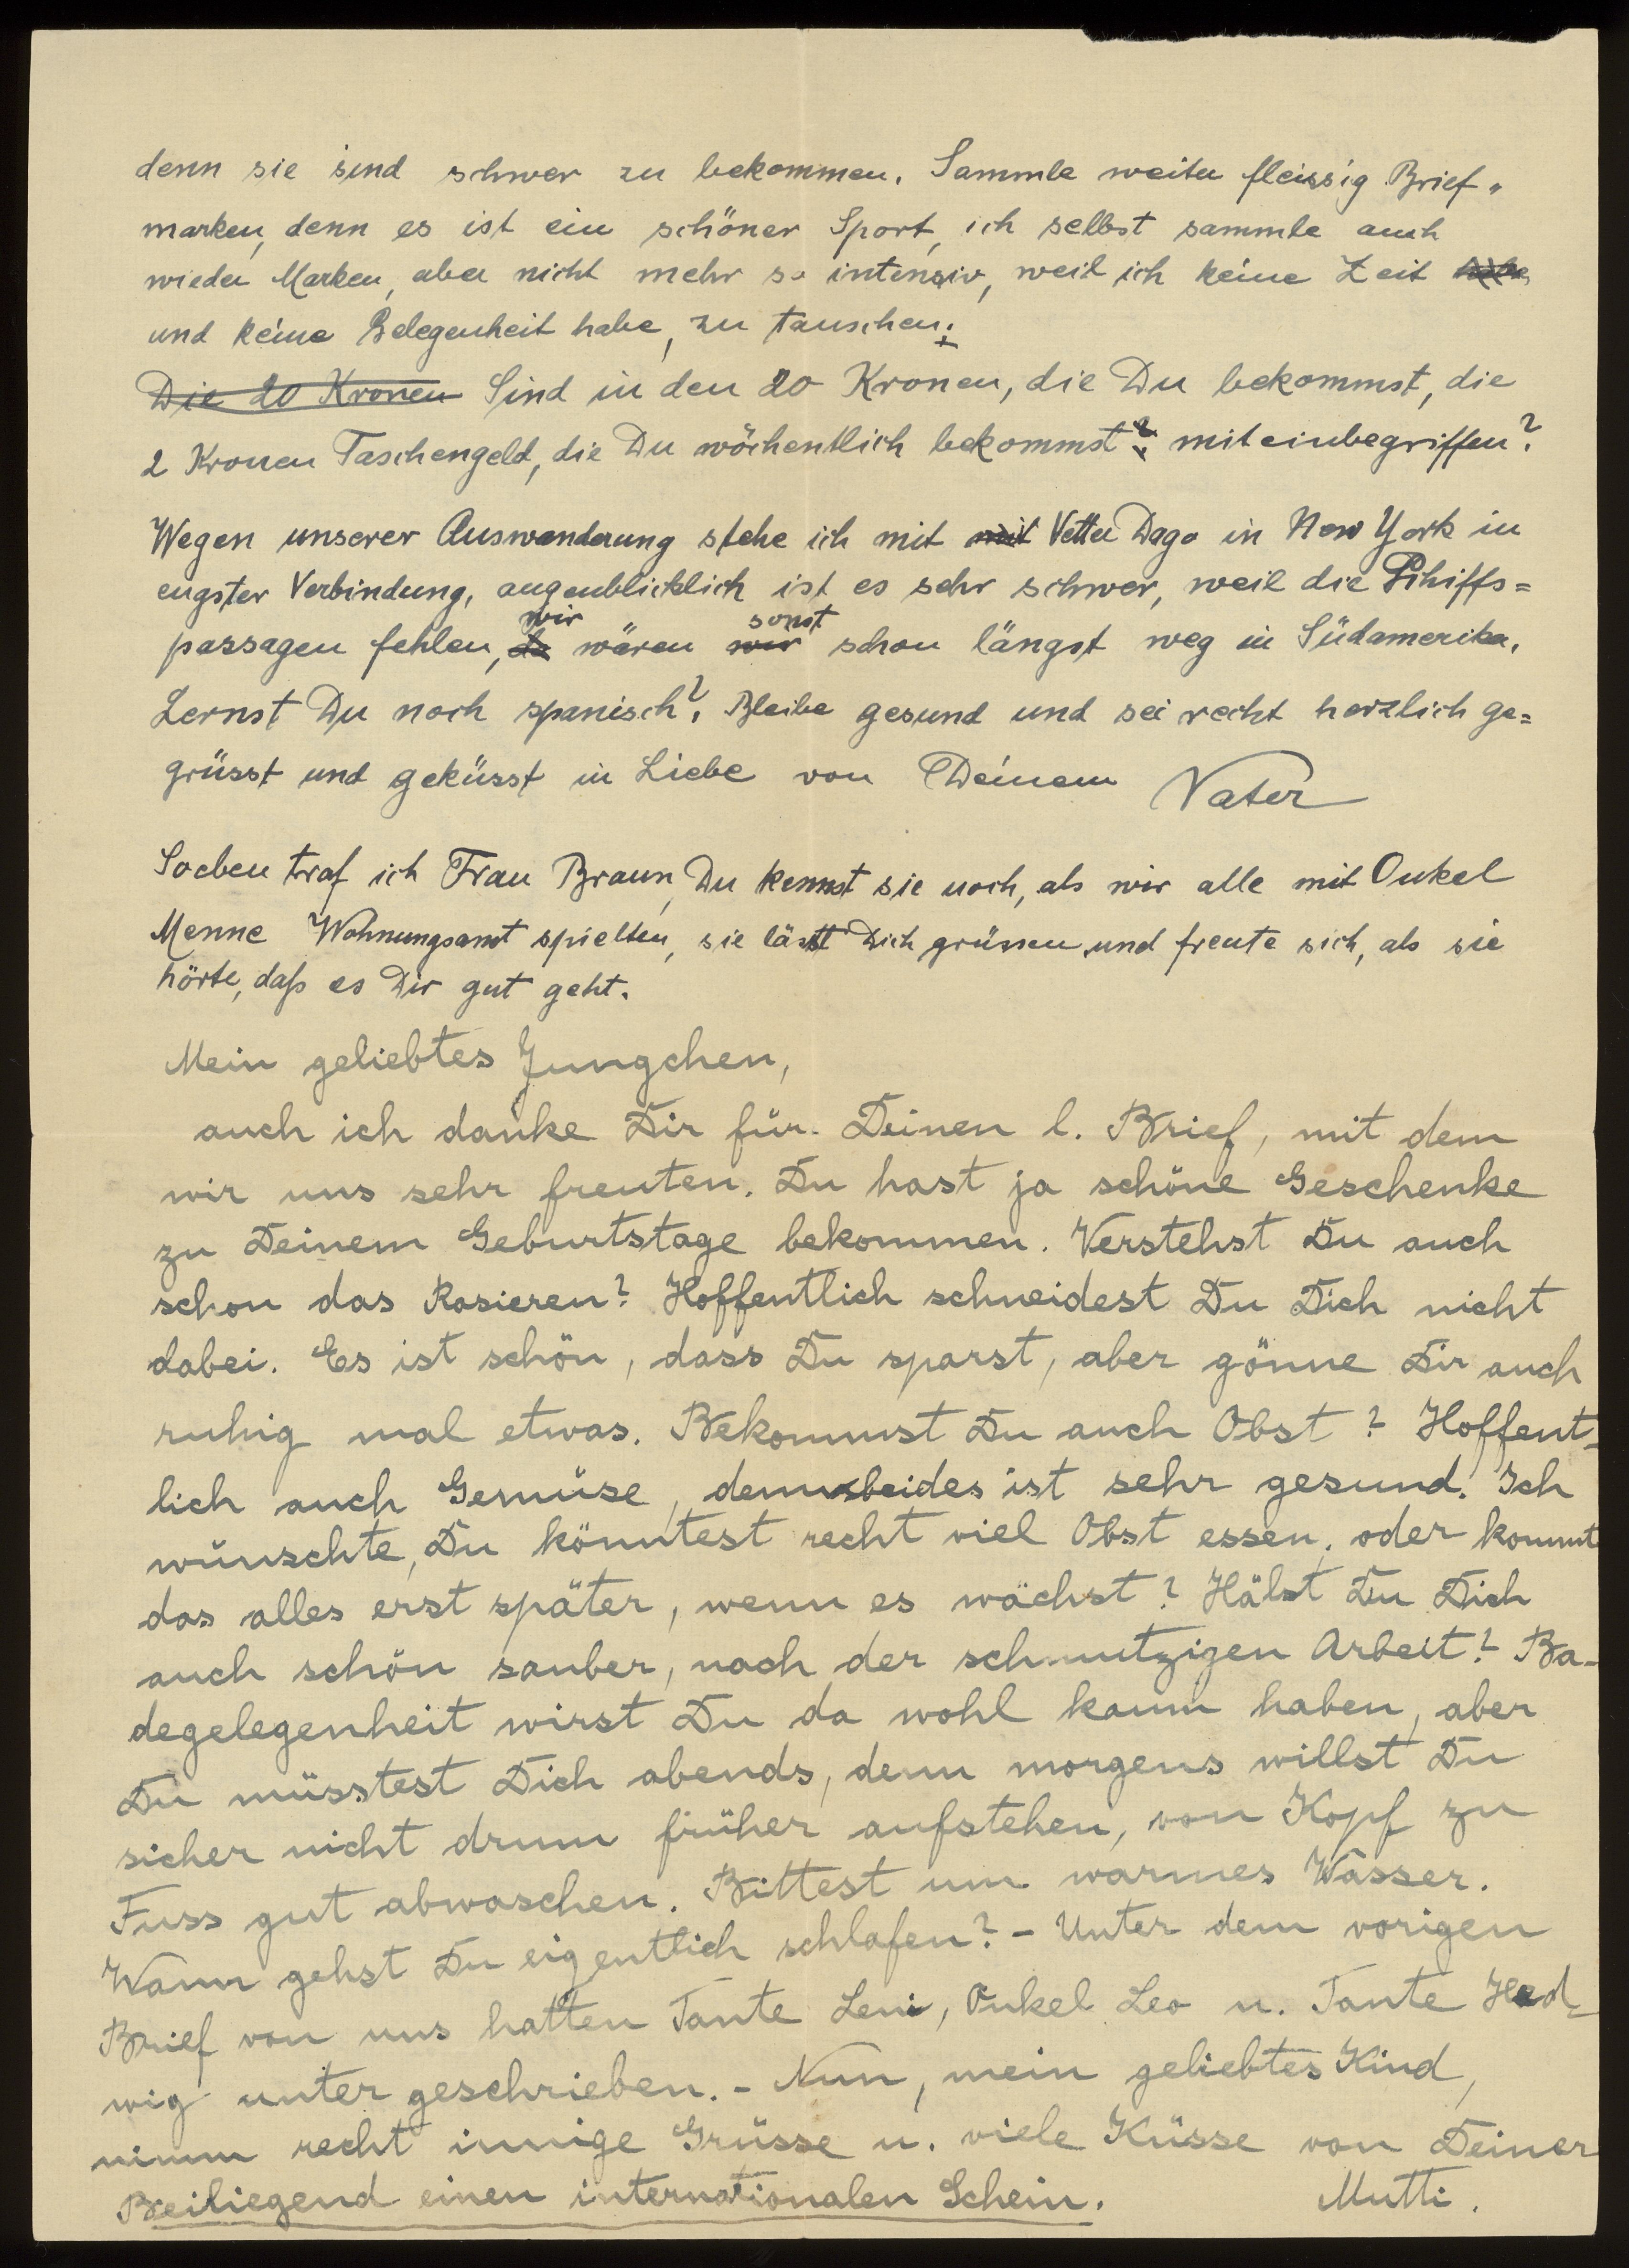 denn sie sind schwer zu bekommen. Sammle weiter fleissig Brief-
marken, denn es ist ein schöner Sport, ich selbst sammle auch
wieder Marken, aber nicht mehr so intensiv, weil ich keine Zeit habe
und keine Gelegenheit habe, zu tauschen.
Die 20 Kronen Sind in den 20 Kronen, die Du bekommst, die
2 Kronen Taschengeld, die Du wöchentlich bekommst? miteinbegriffen?
Wegen unserer Auswanderung stehe ich mit mit Vetter Dago in New York in
engster Verbindung, augenblicklich ist es sehr schwer, weil die Schiffs=
passagen fehlen, wir wären wir sonst schon längst weg in Südamerika.
Lernst Du noch spanisch? Bleibe gesund und sei recht herzlich ge=
grüsst und geküsst in Liebe von Deinem Vater
Soeben traf ich Frau Braun, Du kennst sie noch, als wir alle mit Onkel
Menne Wohnungsamt spielten, sie lässt Dich grüssen und freute sich, als sie
hörte, daß es Dir gut geht.
Mein geliebtes Jungchen,
auch ich danke Dir für Deinen l. Brief, mit dem
wir uns sehr freuten. Du hast ja schöne Geschenke
zu Deinem Geburtstage bekommen. Verstehst Du auch
schon das Rasieren? Hoffentlich schneidest Du Dich nicht
dabei. Es ist schön, dass Du sparst, aber gönne Dir auch
ruhig mal etwas. Bekommst Du auch Obst? Hoffent-
lich auch Gemüse, denn beides ist sehr gesund. Ich
wünschte, Du könntest recht viel Obst essen, oder kommt
das alles erst später, wenn es wächst? Hälst Du Dich
auch schön sauber, nach der schmutzigen Arbeit? Ba-
degelegenheit wirst Du da wohl kaum haben, aber
Du müsstest Dich abends, denn morgens willst Du
sicher nicht drum früher aufstehen, von Kopf zu
Fuss gut abwaschen. Bittest um warmes Wasser.
Wann gehst Du eigentlich schlafen? - Unter dem vorigen
Brief von uns hatten Tante Leni, Onkel Leo u. Tante Hed-
wig unter geschrieben. - Nun, mein geliebtes Kind,
nimm recht innige Grüsse u. viele Küsse von Deiner
Beiliegend einen internationalen Schein. Mutti.